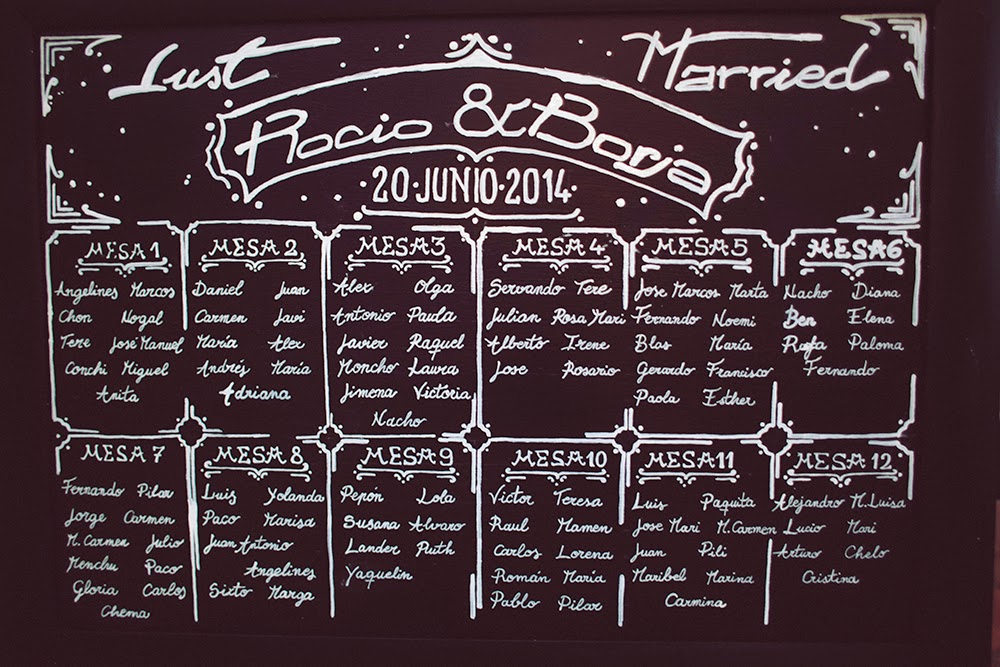 Just Married
Rocio & Borja
20·JUNIO·2014
MESA 1
Angelines Marcos
Chon Nogal
Tere José Manuel
Conchi Miguel
Anita
MESA 2
Daniel Juan
Carmen Javi
María Alex
Andrés María
Adriana
MESA 3
Alex Olga
Antonio Paula
Javier Raquel
Moncho Laura
Jimena Victoria
Nacho
MESA 4
Servando Tere
Julian Rosa Mari
Alberto Irene
Jose Rosario
MESA 5
Jose Marcos Marta
Fernando Noemi
Blas María
Gerardo Francisco
Paola Esther
MESA 6
Nacho Diana
Ben Elena
Rafa Paloma
Fernando
MESA 7
Fernando Pilar
Jorge Carmen
M. Carmen Julio
Menchu Paco
Gloria Carlos
Chema
MESA 8
Luis Yolanda
Paco Marisa
Juan Antonio
Angelines
Sixto Marga
MESA 9
Pepón Lola
Susana Alvaro
Lander Ruth
Yaquelin
MESA 10
Victor Teresa
Raul Mamen
Carlos Lorena
Román María
Pablo Pilar
MESA 11
Luis Paquita
Jose Mari M. Carmen
Juan Pili
Maribel Marina
Carmina
MESA 12
Alejandro M. Luisa
Lucio Mari
Arturo Chelo
Cristina